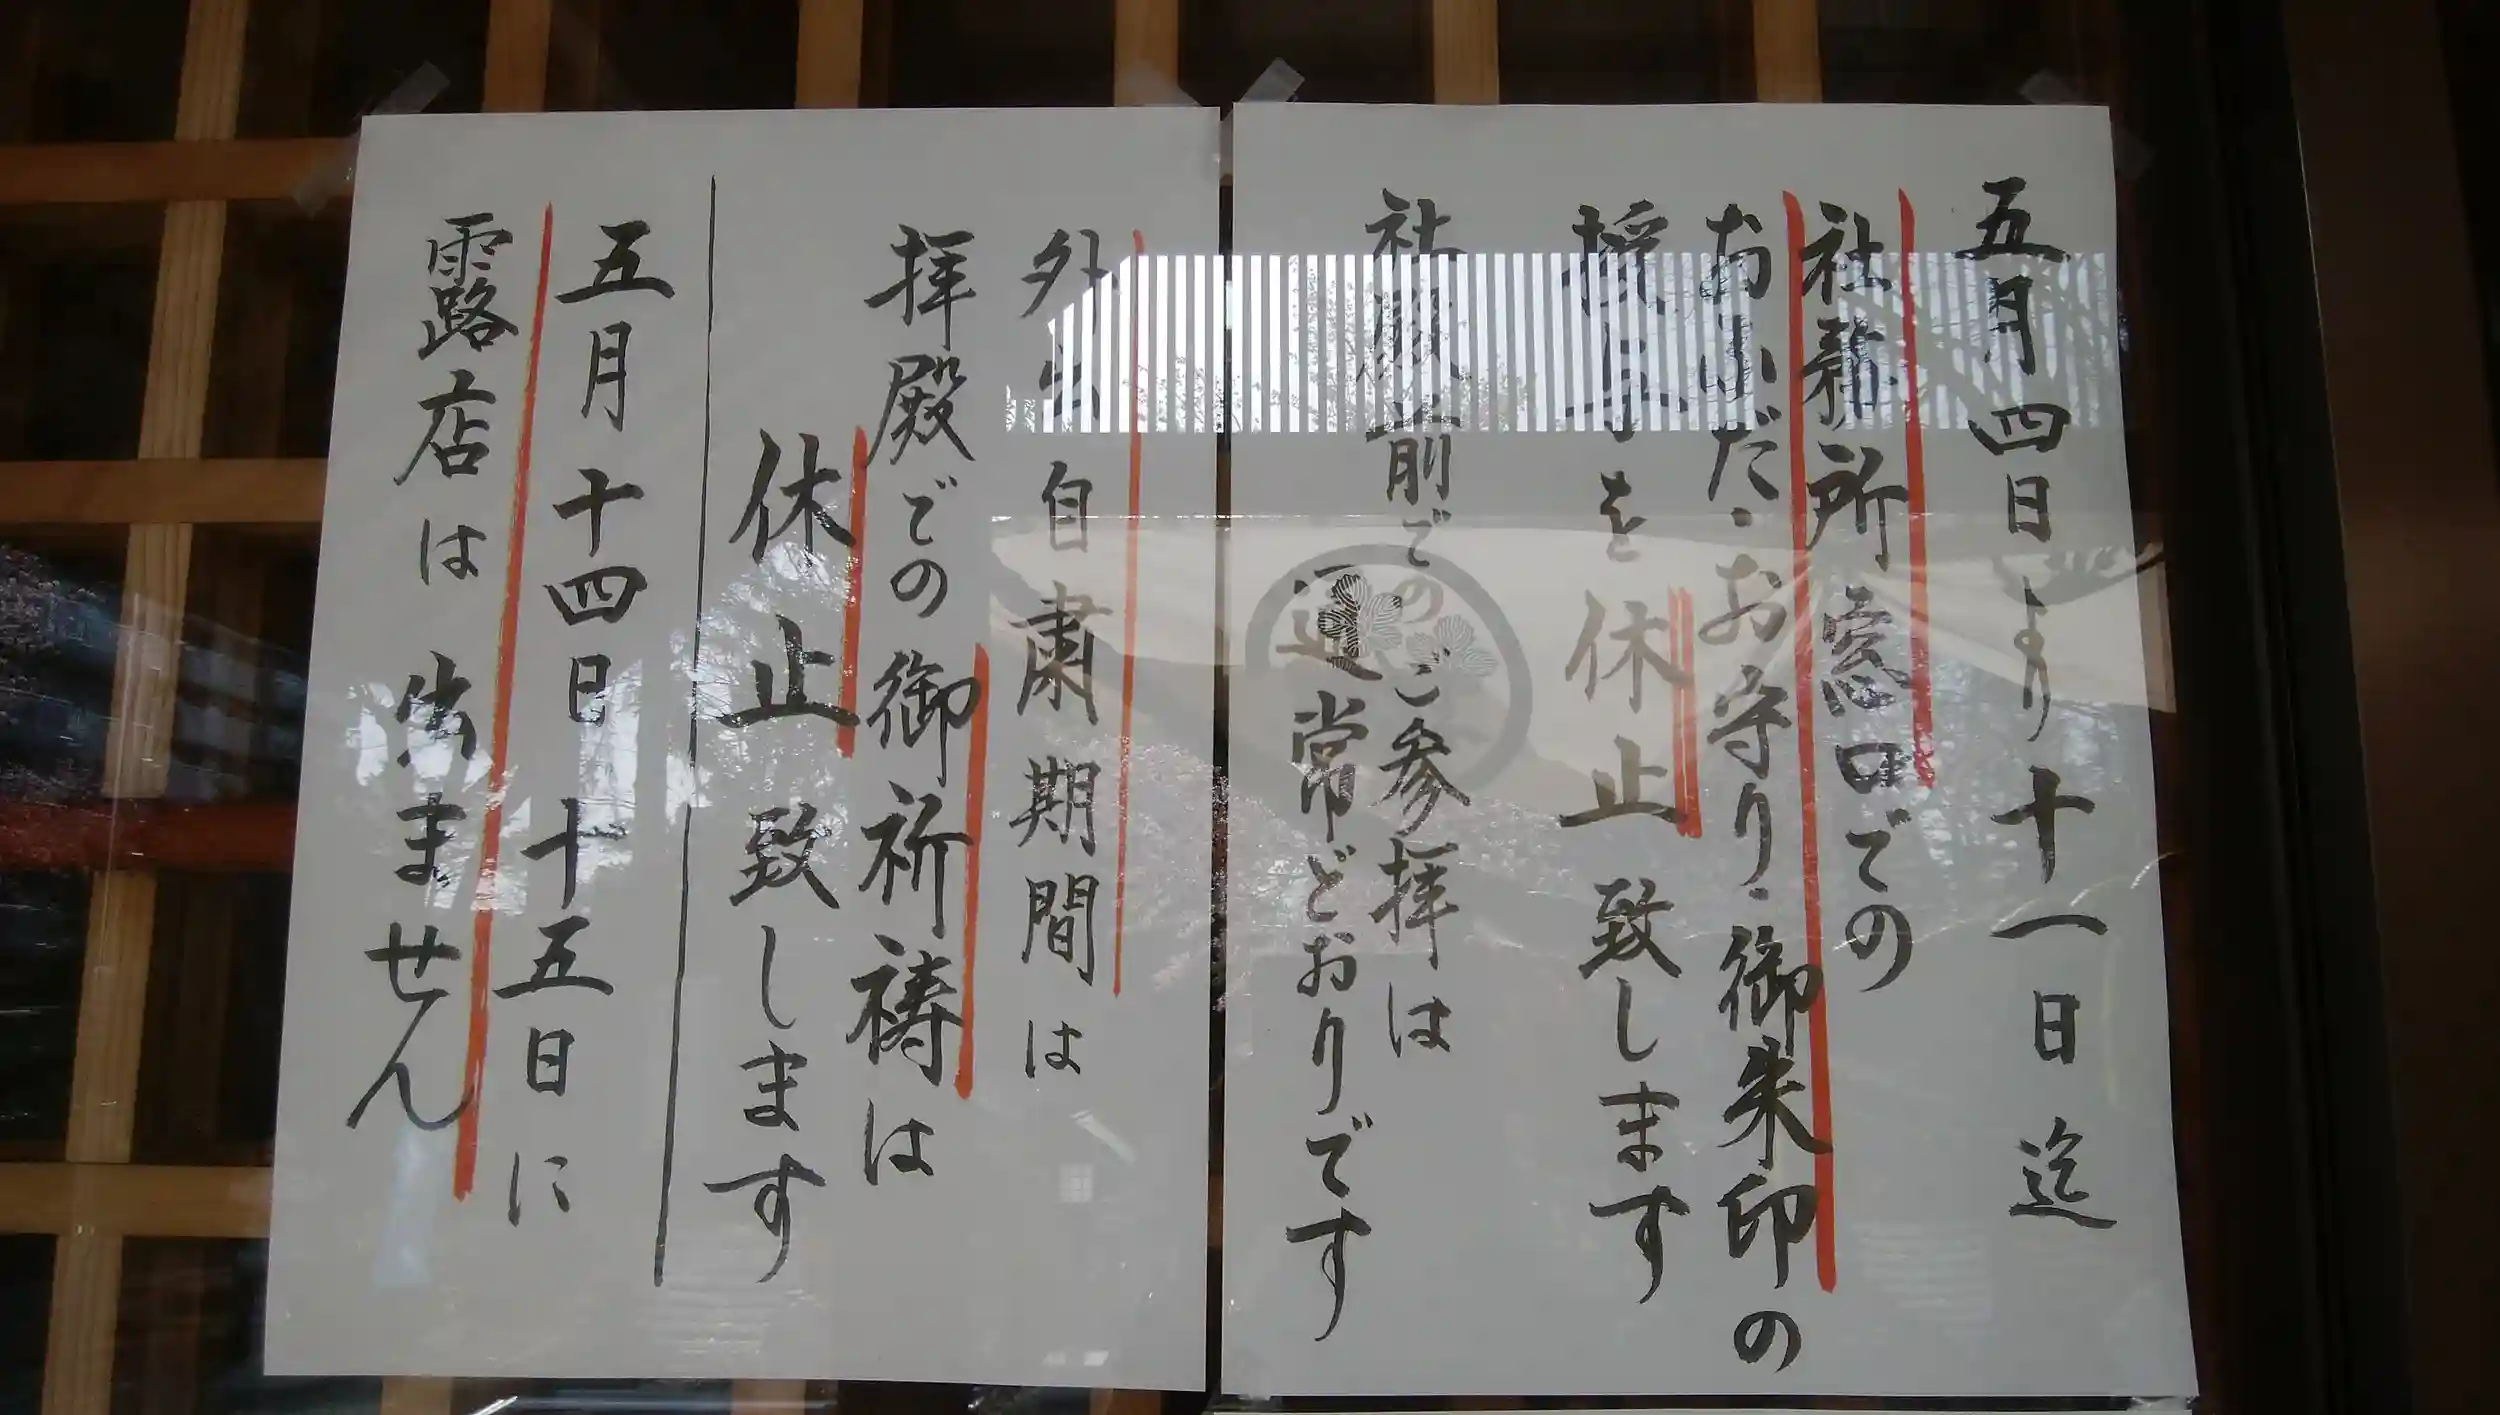 五月四日より十一日迄
社務所窓口での
おふだ・お守り・御朱印の
授与を休止致します
社殿前でのご参拝は
通常どおりです
外出自粛期間は
拝殿での御祈祷は
休止致します
五月十四日十五日に
露店は出ません